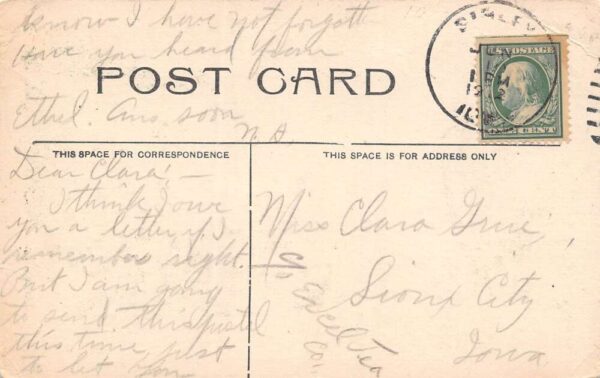 know I have not forgott
Have you heard from
POST CARD
Ethel. Ans soon
N. A.
SIBLEY
IOWA
U.S. POSTAGE
1 CENT
THIS SPACE FOR CORRESPONDENCE
THIS SPACE IS FOR ADDRESS ONLY
Dear Clara:—
I think I owe
you a letter if I
remember right.
But I am going
to send this postal
this time just
to let you
Miss Clara
Sioux City
Iowa
c/o Excel Tea
Co.